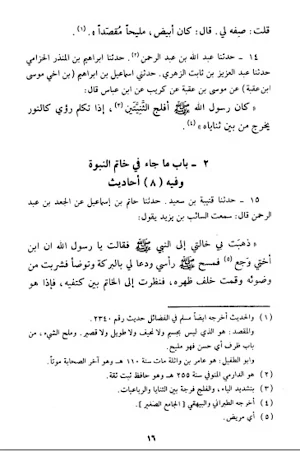 قلت: صفه لي. قال: كان أبيض، مليحاً مُقَصَّداً ». (١).
١٤ - حدثنا عبد الله بن عبد الرحمن (٢). حدثنا ابراهيم بن المنذر الحزامي
حدثنا عبد العزيز بن ثابت الزهري. حدثني اسماعيل بن ابراهيم (بن اخي موسى
ابن عقبة) عن موسى بن عقبة عن كريب عن ابن عباس قال:
« كان رسول الله ﷺ أفلج الثَّنِيَّتَين (٣)، إذا تكلم رؤي كالنور
يخرج من بين ثناياه » (٤).
٢ - باب ما جاء في خاتم النبوة
وفيه (٨) أحاديث
١٥ - حدثنا قتيبة بن سعيد. حدثنا حاتم بن إسماعيل عن الجعد بن عبد
الرحمن قال: سمعت السائب بن يزيد يقول:
« ذهبَت بي خالتي إلى النبي ﷺ فقالت يا رسول الله ان ابن
أختي وَجِع (٥) فمسح ﷺ رأسي ودعا لي بالبركة وتوضأ فشربت من
وضوئه وقمت خلف ظهره، فنظرت إلى الخاتم بين كتفيه، فإذا هو
(١) والحديث أخرجه ايضاً مسلم في الفضائل حديث رقم ٢٣٤٠.
والمقصد: هو الذي ليس بجسيم ولا نحيف ولا طويل ولا قصير. وملح الشيء، من
باب ظرف أي حسن فهو مليح.
وابو الطفيل: هو عامر بن واثلة مات سنة ١١٠ هـ وهو آخر الصحابة موتاً.
(٢) هو الدارمي المتوفي سنة ٢٥٥ هـ وهو حافظ ثبت ثقة.
(٣) بتشديد الياء، والفلج فرجة بين الثنايا والرباعيات.
(٤) أخرجه الطبراني والبيهقي [الجامع الصغير].
(٥) أي مريض.
١٦